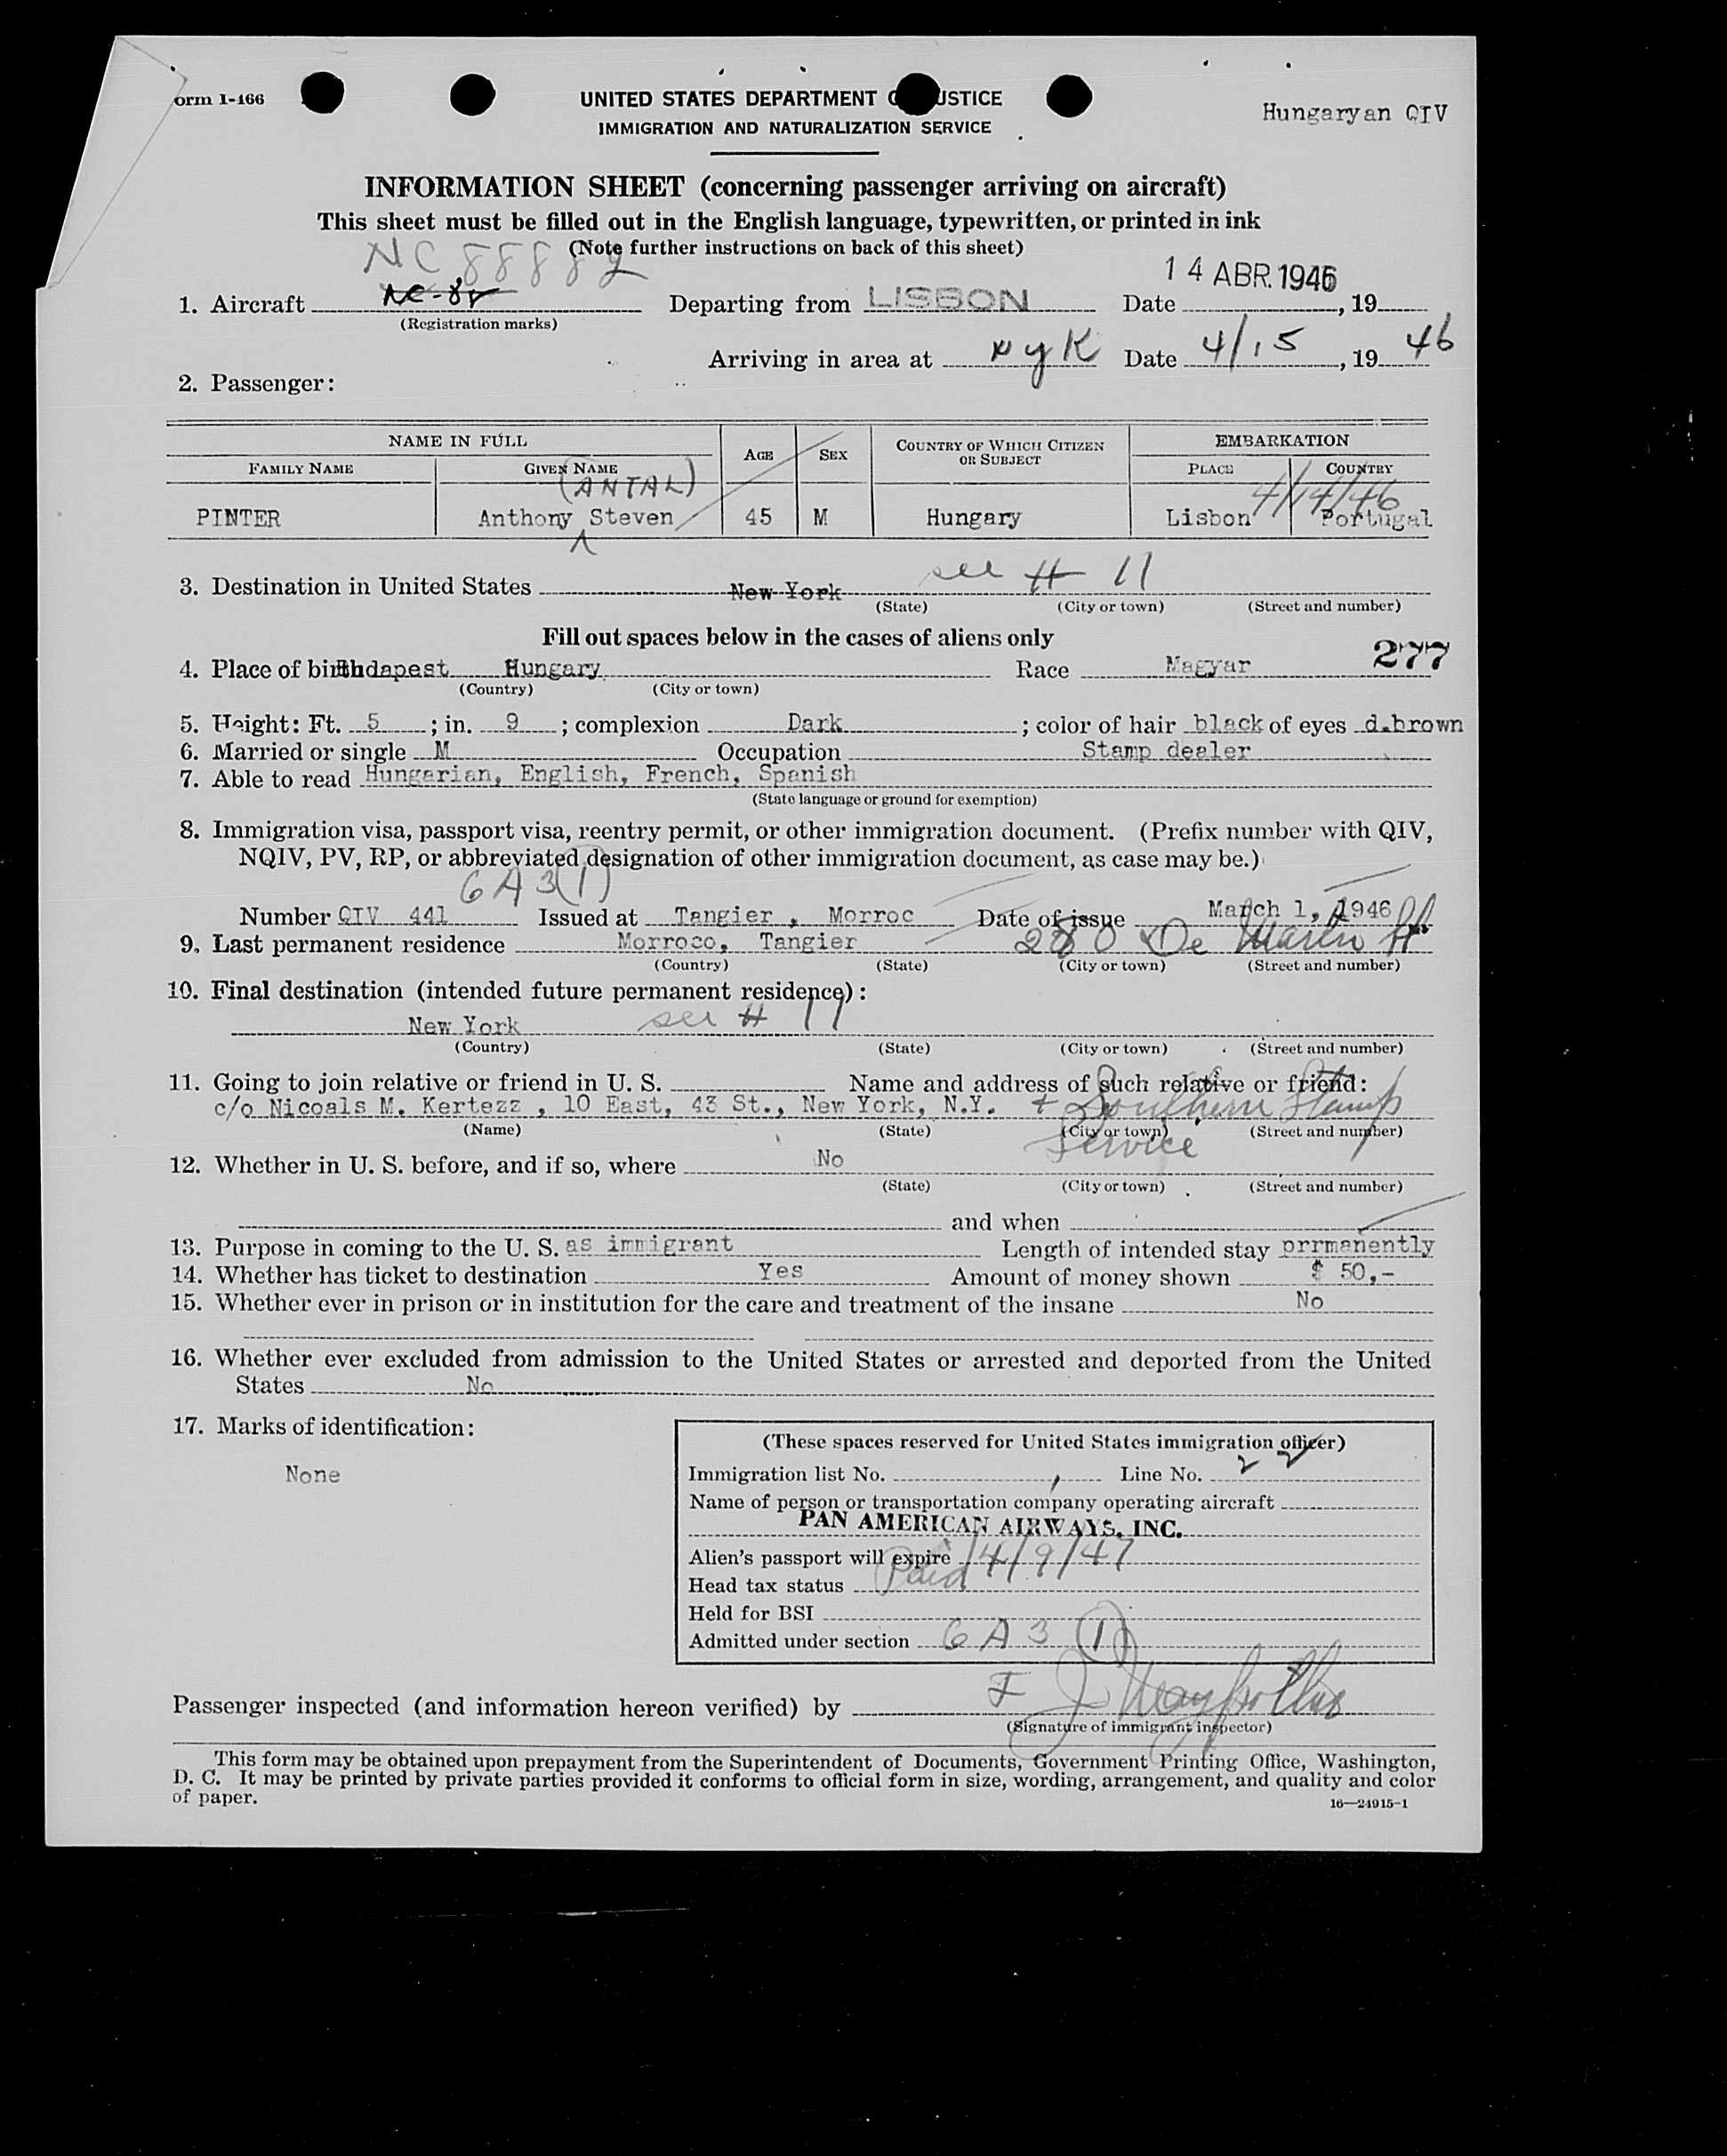 orm I-466
UNITED STATES DEPARTMENT O USTICE
IMMIGRATION AND NATURALIZATION SERVICE
Hungaryan QIV
INFORMATION SHEET (concerning passenger arriving on aircraft)
This sheet must be filled out in the English language, typewritten, or printed in ink
(Note further instructions on back of this sheet)
NC 88882
14 ABR. 1946
1. Aircraft Departing from LISBON Date , 19
(Registration marks)
Arriving in area at NYK Date 4/15, 19 46
2. Passenger:
NAME IN FULL AGE SEX COUNTRY OF WHICH CITIZEN OR SUBJECT EMBARKATION
FAMILY NAME GIVEN NAME PLACE COUNTRY
(ANTAL) 4/14/46
PINTER Anthony Steven 45 M Hungary Lisbon Portugal
3. Destination in United States New York see # 11
(State) (City or town) (Street and number)
Fill out spaces below in the cases of aliens only
277
4. Place of birth Budapest Hungary Race Magyar
(Country) (City or town)
5. Height: Ft. 5 ; in. 9 ; complexion Dark ; color of hair black of eyes d.brown
6. Married or single M Occupation Stamp dealer
7. Able to read Hungarian, English, French, Spanish
(State language or ground for exemption)
8. Immigration visa, passport visa, reentry permit, or other immigration document. (Prefix number with QIV,
NQIV, PV, RP, or abbreviated designation of other immigration document, as case may be.)
6 A 3 (1)
Number QIV 441 Issued at Tangier , Morroc Date of issue March 1, 1946
9. Last permanent residence Morroco, Tangier
(Country) (State) (City or town) (Street and number)
10. Final destination (intended future permanent residence):
New York see # 11
(Country) (State) (City or town) (Street and number)
11. Going to join relative or friend in U. S. Name and address of such relative or friend:
c/o Nicoals M. Kertezz , 10 East, 43 St., New York, N.Y. + Southern Stamp
(Name) (State) (City or town) (Street and number)
Service
12. Whether in U. S. before, and if so, where No
(State) (City or town) (Street and number)
and when
13. Purpose in coming to the U. S. as immigrant Length of intended stay prrmanently
14. Whether has ticket to destination Yes Amount of money shown $ 50,-
15. Whether ever in prison or in institution for the care and treatment of the insane No
16. Whether ever excluded from admission to the United States or arrested and deported from the United
States No
17. Marks of identification:
None
(These spaces reserved for United States immigration officer)
Immigration list No. Line No. 22
Name of person or transportation company operating aircraft
PAN AMERICAN AIRWAYS, INC.
Alien's passport will expire 4/9/47
Head tax status Paid
Held for BSI
Admitted under section 6 A 3 (1)
Passenger inspected (and information hereon verified) by
(Signature of immigrant inspector)
This form may be obtained upon prepayment from the Superintendent of Documents, Government Printing Office, Washington,
D. C. It may be printed by private parties provided it conforms to official form in size, wording, arrangement, and quality and color
of paper.
16—24915-1